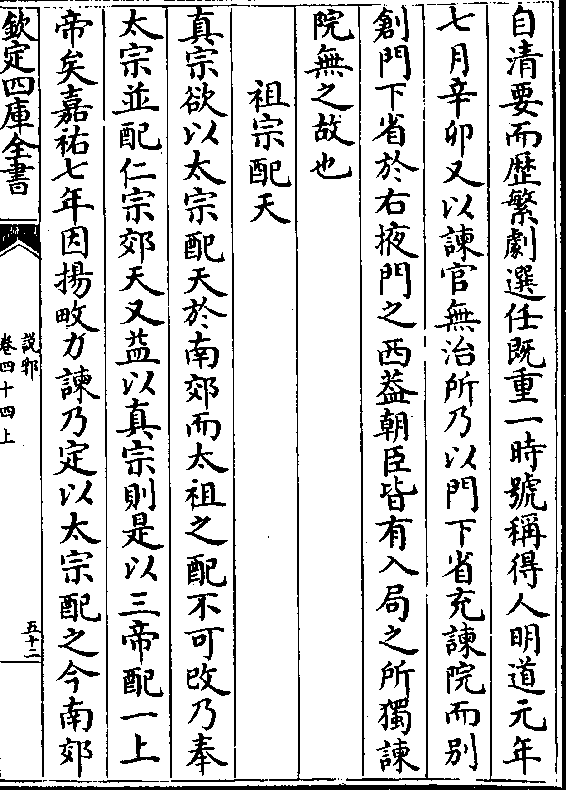 自清要而歴繁劇選任既重一時號稱得人明道元年
七月辛卯又以諫官無治所乃以門下省充諫院而别
創門下省於右掖門之西葢朝臣皆有入局之所獨諫
院無之故也
祖宗配天
真宗欲以太宗配天於南郊而太祖之配不可改乃奉
太宗並配仁宗郊天又益以真宗則是以三帝配一上
帝矣嘉祐七年因揚畋力諫乃定以太宗配之今南郊
欽定四庫全書
説郛
卷四十四上
五十二